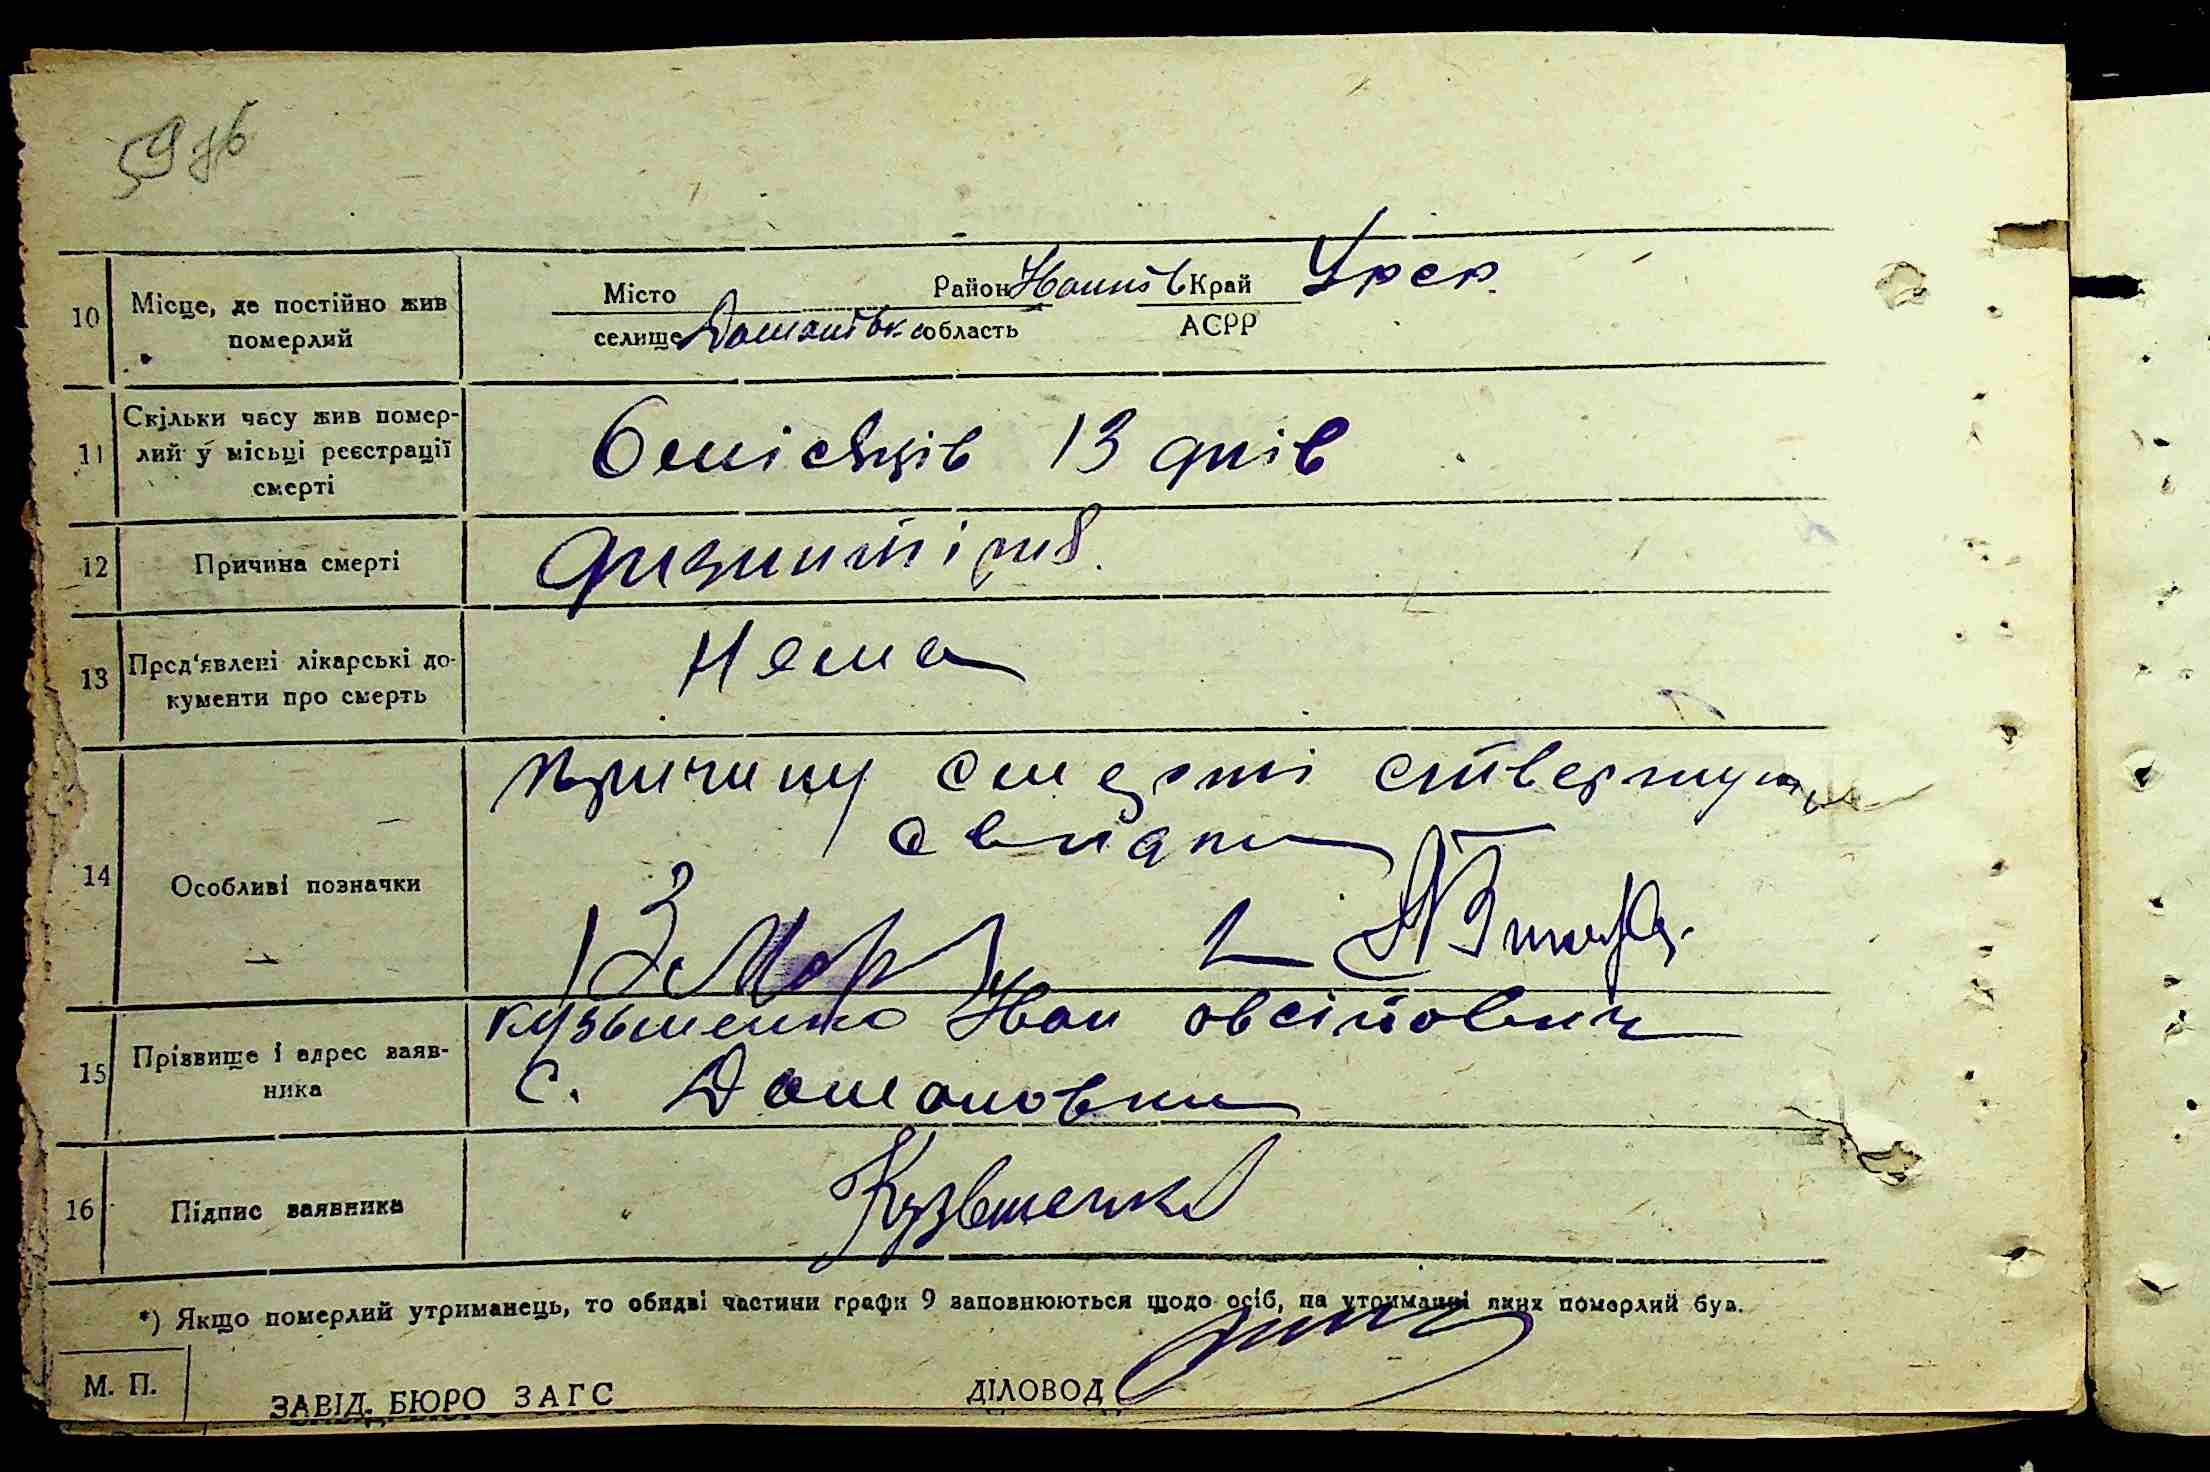 59 зв
10 Місце, де постійно жив померлий
Місто Район Край Урср.
селище Доманівка область АСРР
11 Скільки часу жив помер-
лий у місці реєстрації
смерті
6 місяців 13 днів
12 Причина смерті
дизинтірія.
13 Пред'явлені лікарські до-
кументи про смерть
Нема
14 Особливі позначки
причину смерти ствержують
свидки
1
2
15 Прізвище і адрес заяв-
ника
Кузьменко Иван овсійович
с. Домановки
16 Підпис заявника
Кузьменко
*) Якщо померлий утриманець, то обидві частини графи 9 заповнюються щодо осіб, на утриманні яких померлий був.
М. П.
ЗАВІД. БЮРО ЗАГС ДІЛОВОД